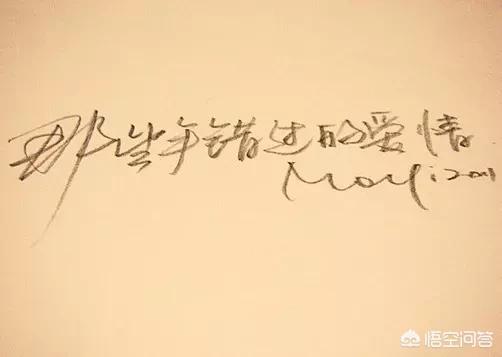 那些年错过的爱情
悟空问答